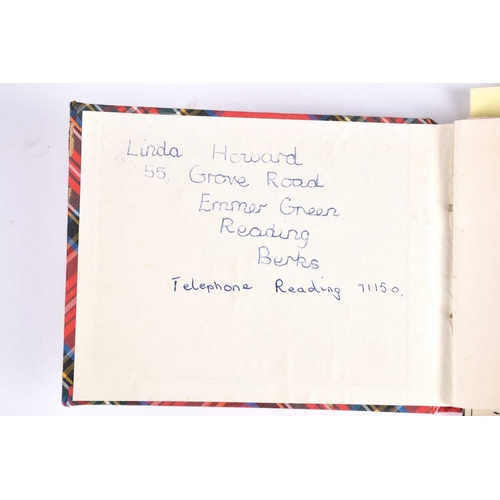 Linda Howard
55, Grove Road
Emmer Green
Reading
Berks.
Telephone Reading 71150.